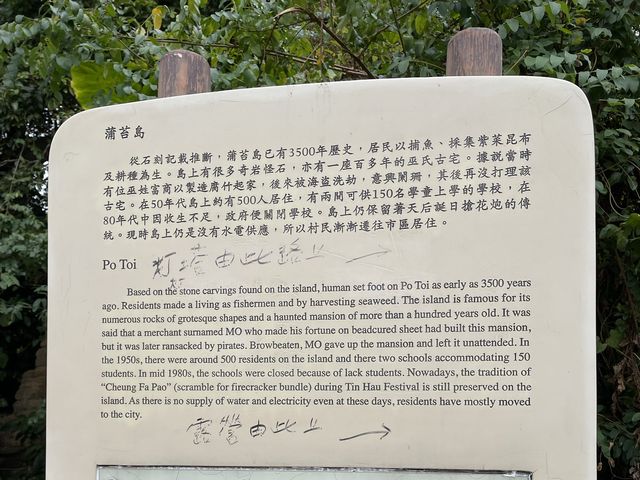 蒲苔島
從石刻記載推斷，蒲苔島已有3500年歷史，居民以捕魚、採集紫菜昆布
及耕種為生。島上有很多奇岩怪石，亦有一座百多年的巫氏古宅。據說當時
有位巫姓富商以製造腐什起家，後來被海盜洗劫，意興闌珊，其後再沒打理該
古宅。在50年代島上約有500人居住，有兩間可供150名學童上學的學校，在
80年代中因收生不足，政府便關閉學校。島上仍保留著天后誕日搶花炮的傳
統。現時島上仍是沒有水電供應，所以村民漸漸遷往市區居住。
Po Toi 灯塔由此路上 →
Based on the stone carvings found on the island, human set foot on Po Toi as early as 3500 years
ago. Residents made a living as fishermen and by harvesting seaweed. The island is famous for its
numerous rocks of grotesque shapes and a haunted mansion of more than a hundred years old. It was
said that a merchant surnamed MO who made his fortune on beadcured sheet had built this mansion,
but it was later ransacked by pirates. Browbeaten, MO gave up the mansion and left it unattended. In
the 1950s, there were around 500 residents on the island and there two schools accommodating 150
students. In mid 1980s, the schools were closed because of lack students. Nowadays, the tradition of
“Cheung Fa Pao” (scramble for firecracker bundle) during Tin Hau Festival is still preserved on the
island. As there is no supply of water and electricity even at these days, residents have mostly moved
to the city.
露營由此上 →